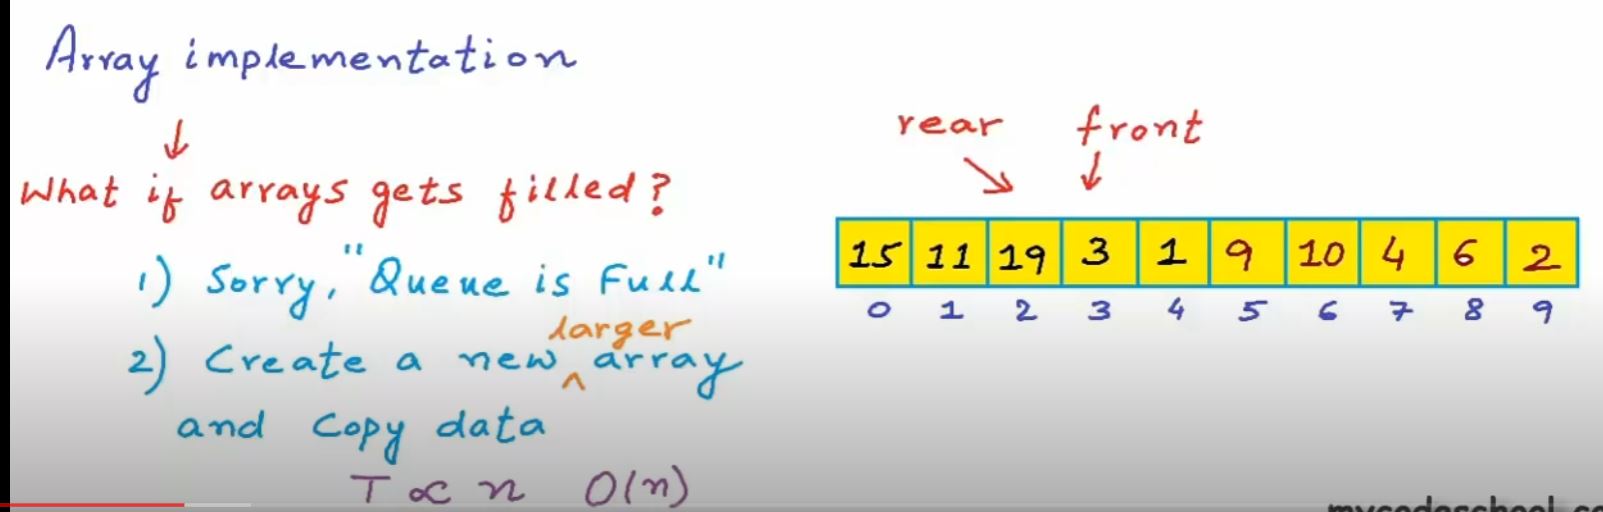 Array implementation
What if arrays gets filled?
1) Sorry, "Queue is Full"
larger
2) Create a new ^ array
and copy data
T ∝ n O(n)
rear front
15 11 19 3 1 9 10 4 6 2
0 1 2 3 4 5 6 7 8 9